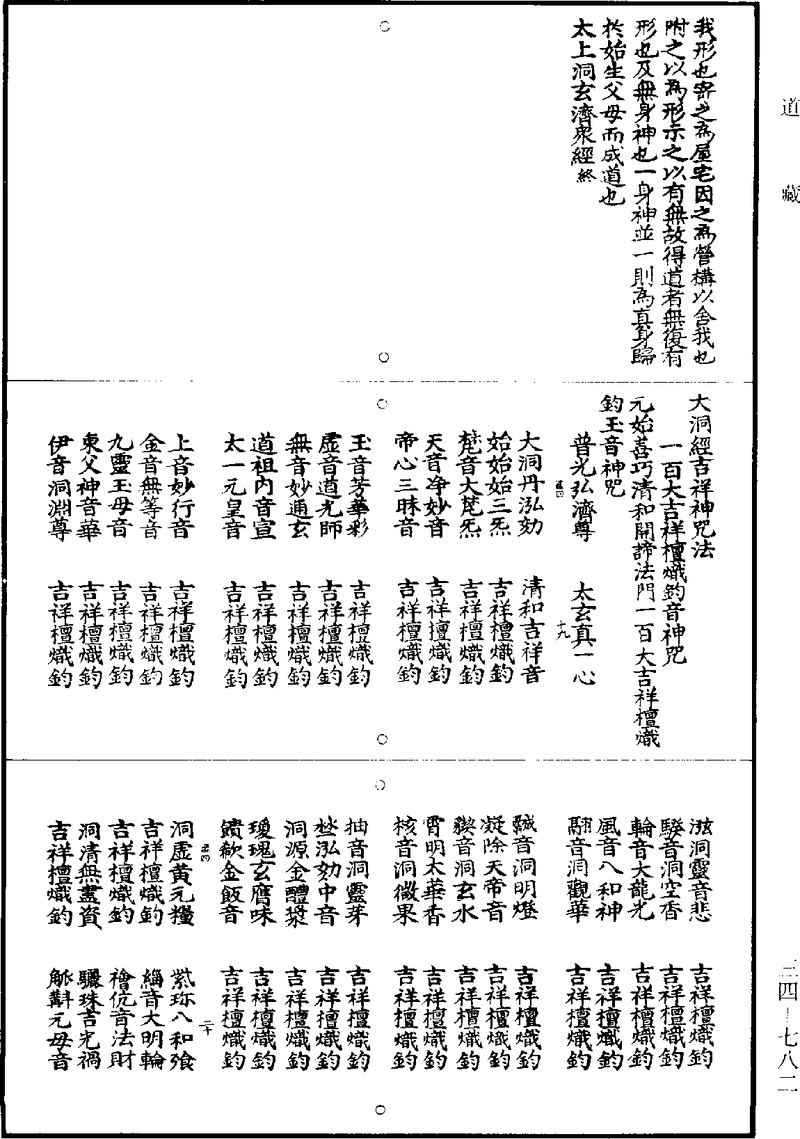 道藏
我形也寄之為屋宅因之為營構以舍我也
附之以為形示之以有無故得道者無復有
形也及無身神也一身神並一則為真身歸
於始生父母而成道也
太上洞玄濟衆經終
大洞經吉祥神咒法
一百大吉祥檀熾鈞音神咒
元始善巧清和開諦法門一百大吉祥檀熾
鈞玉音神咒
普光弘濟尊 太玄真一心
十九
大洞丹泓効 清和吉祥音
始始始三炁 吉祥檀熾鈞
梵音大梵炁 吉祥檀熾鈞
天音净妙音 吉祥檀熾鈞
帝心三昧音 吉祥檀熾鈞
玉音芳華彩 吉祥檀熾鈞
虛音道光師 吉祥檀熾鈞
無音妙通玄 吉祥檀熾鈞
道祖內音宣 吉祥檀熾鈞
太一元皇音 吉祥檀熾鈞
上音妙行音 吉祥檀熾鈞
金音無等音 吉祥檀熾鈞
九靈玉母音 吉祥檀熾鈞
東父神音華 吉祥檀熾鈞
伊音洞淵尊 吉祥檀熾鈞
洞靈音悲 吉祥檀熾鈞
音洞空香 吉祥檀熾鈞
輪音大龍光 吉祥檀熾鈞
風音八和神 吉祥檀熾鈞
翮音洞觀華 吉祥檀熾鈞
音洞明燈 吉祥檀熾鈞
凝除天帝音 吉祥檀熾鈞
音洞玄水 吉祥檀熾鈞
霄明太華香 吉祥檀熾鈞
核音洞微果 吉祥檀熾鈞
抽音洞靈芽 吉祥檀熾鈞
泓効中音 吉祥檀熾鈞
洞源金醴漿 吉祥檀熾鈞
瓊瑰玄膺味 吉祥檀熾鈞
饋歛金飯音 吉祥檀熾鈞
二十
洞虛黃元糧 紫珎八和飡
吉祥檀熾鈞 緇音大明輪
吉祥檀熾鈞 檜伉音法財
洞清無盡資 驪珠吉光禍
吉祥檀熾鈞 元母音
三四—七八二